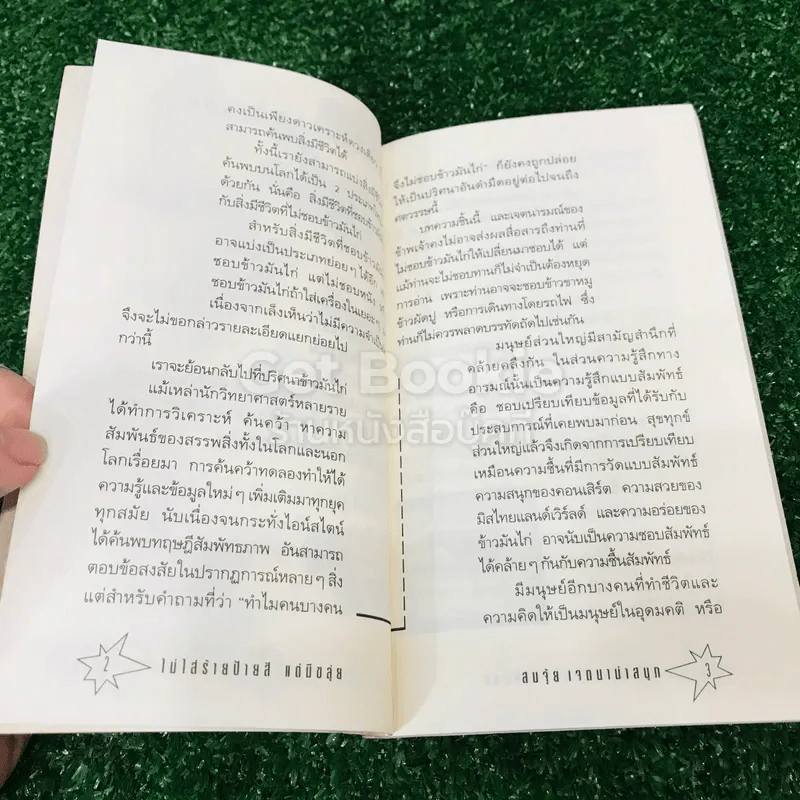 คงเป็นเพียงดาวเคราะห์ดวงเดียว
สามารถค้นพบสิ่งมีชีวิตได้
ทั้งนี้เรายังสามารถแบ่งสิ่งมีชีวิต
ค้นพบบนโลกได้เป็น 2 ประเภทใหญ่
ด้วยกัน นั่นคือ สิ่งมีชีวิตที่ชอบข้าวมันไก่
กับสิ่งมีชีวิตที่ไม่ชอบข้าวมันไก่
สำหรับสิ่งมีชีวิตที่ชอบข้าวมันไก่
อาจแบ่งเป็นประเภทย่อยๆ ได้อีก
ชอบข้าวมันไก่ แต่ไม่ชอบหนัง
ชอบข้าวมันไก่ถ้าใส่เครื่องในเยอะๆ
เนื่องจากเล็งเห็นว่าไม่มีความจำเป็น
จึงจะไม่ขอกล่าวรายละเอียดแยกย่อยไป
กว่านี้
เราจะย้อนกลับไปที่ปริศนาข้าวมันไก่
แม้เหล่านักวิทยาศาสตร์หลายราย
ได้ทำการวิเคราะห์ ค้นคว้า หาความ
สัมพันธ์ของสรรพสิ่งทั้งในโลกและนอก
โลกเรื่อยมา การค้นคว้าทดลองทำให้ได้
ความรู้และข้อมูลใหม่ๆ เพิ่มเติมมาทุกยุค
ทุกสมัย นับเนื่องจนกระทั่งไอน์สไตน์
ได้ค้นพบทฤษฎีสัมพัทธภาพ อันสามารถ
ตอบข้อสงสัยในปรากฏการณ์หลายๆ สิ่ง
แต่สำหรับคำถามที่ว่า "ทำไมคนบางคน
2 ไม่ใส่ร้ายป้ายสี แต่มีขลุ่ย
จึงไม่ชอบข้าวมันไก่" ก็ยังคงถูกปล่อย
ให้เป็นปริศนาอันดำมืดอยู่ต่อไปจนถึง
ศตวรรษนี้
บทความชิ้นนี้ และเจตนารมณ์ของ
ข้าพเจ้าคงไม่อาจส่งผลสื่อสารถึงท่านที่
ไม่ชอบข้าวมันไก่ให้เปลี่ยนมาชอบได้ แต่
แม้ท่านจะไม่ชอบท่านก็ไม่จำเป็นต้องหยุด
การอ่าน เพราะท่านอาจจะชอบข้าวขาหมู
ข้าวผัดปู หรือการเดินทางโดยรถไฟ ซึ่ง
ท่านก็ไม่ควรพลาดบรรทัดถัดไปเช่นกัน
มนุษย์ส่วนใหญ่มีสามัญสำนึกที่
คล้ายคลึงกัน ในส่วนความรู้สึกทาง
อารมณ์นั้นเป็นความรู้สึกแบบสัมพัทธ์
คือ ชอบเปรียบเทียบข้อมูลที่ได้รับกับ
ประสบการณ์ที่เคยพบมาก่อน สุขทุกข์
ส่วนใหญ่แล้วจึงเกิดจากการเปรียบเทียบ
เหมือนความชื้นที่มีการวัดแบบสัมพัทธ์
ความสนุกของคอนเสิร์ต ความสวยของ
มิสไทยแลนด์เวิร์ลด์ และความอร่อยของ
ข้าวมันไก่ อาจนับเป็นความชอบสัมพัทธ์
ได้คล้ายๆ กันกับความชื้นสัมพัทธ์
มีมนุษย์อีกบางคนที่ทำชีวิตและ
ความคิดให้เป็นมนุษย์ในอุดมคติ หรือ
สมจุ้ย เจตนาน่าสนุก 3
Get Bookie